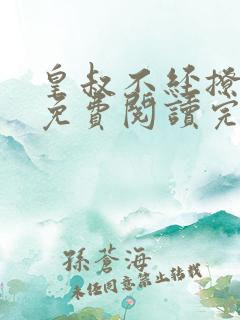 皇叔不经撩
免費閱讀完
孫蒼海
未经同意禁止转载